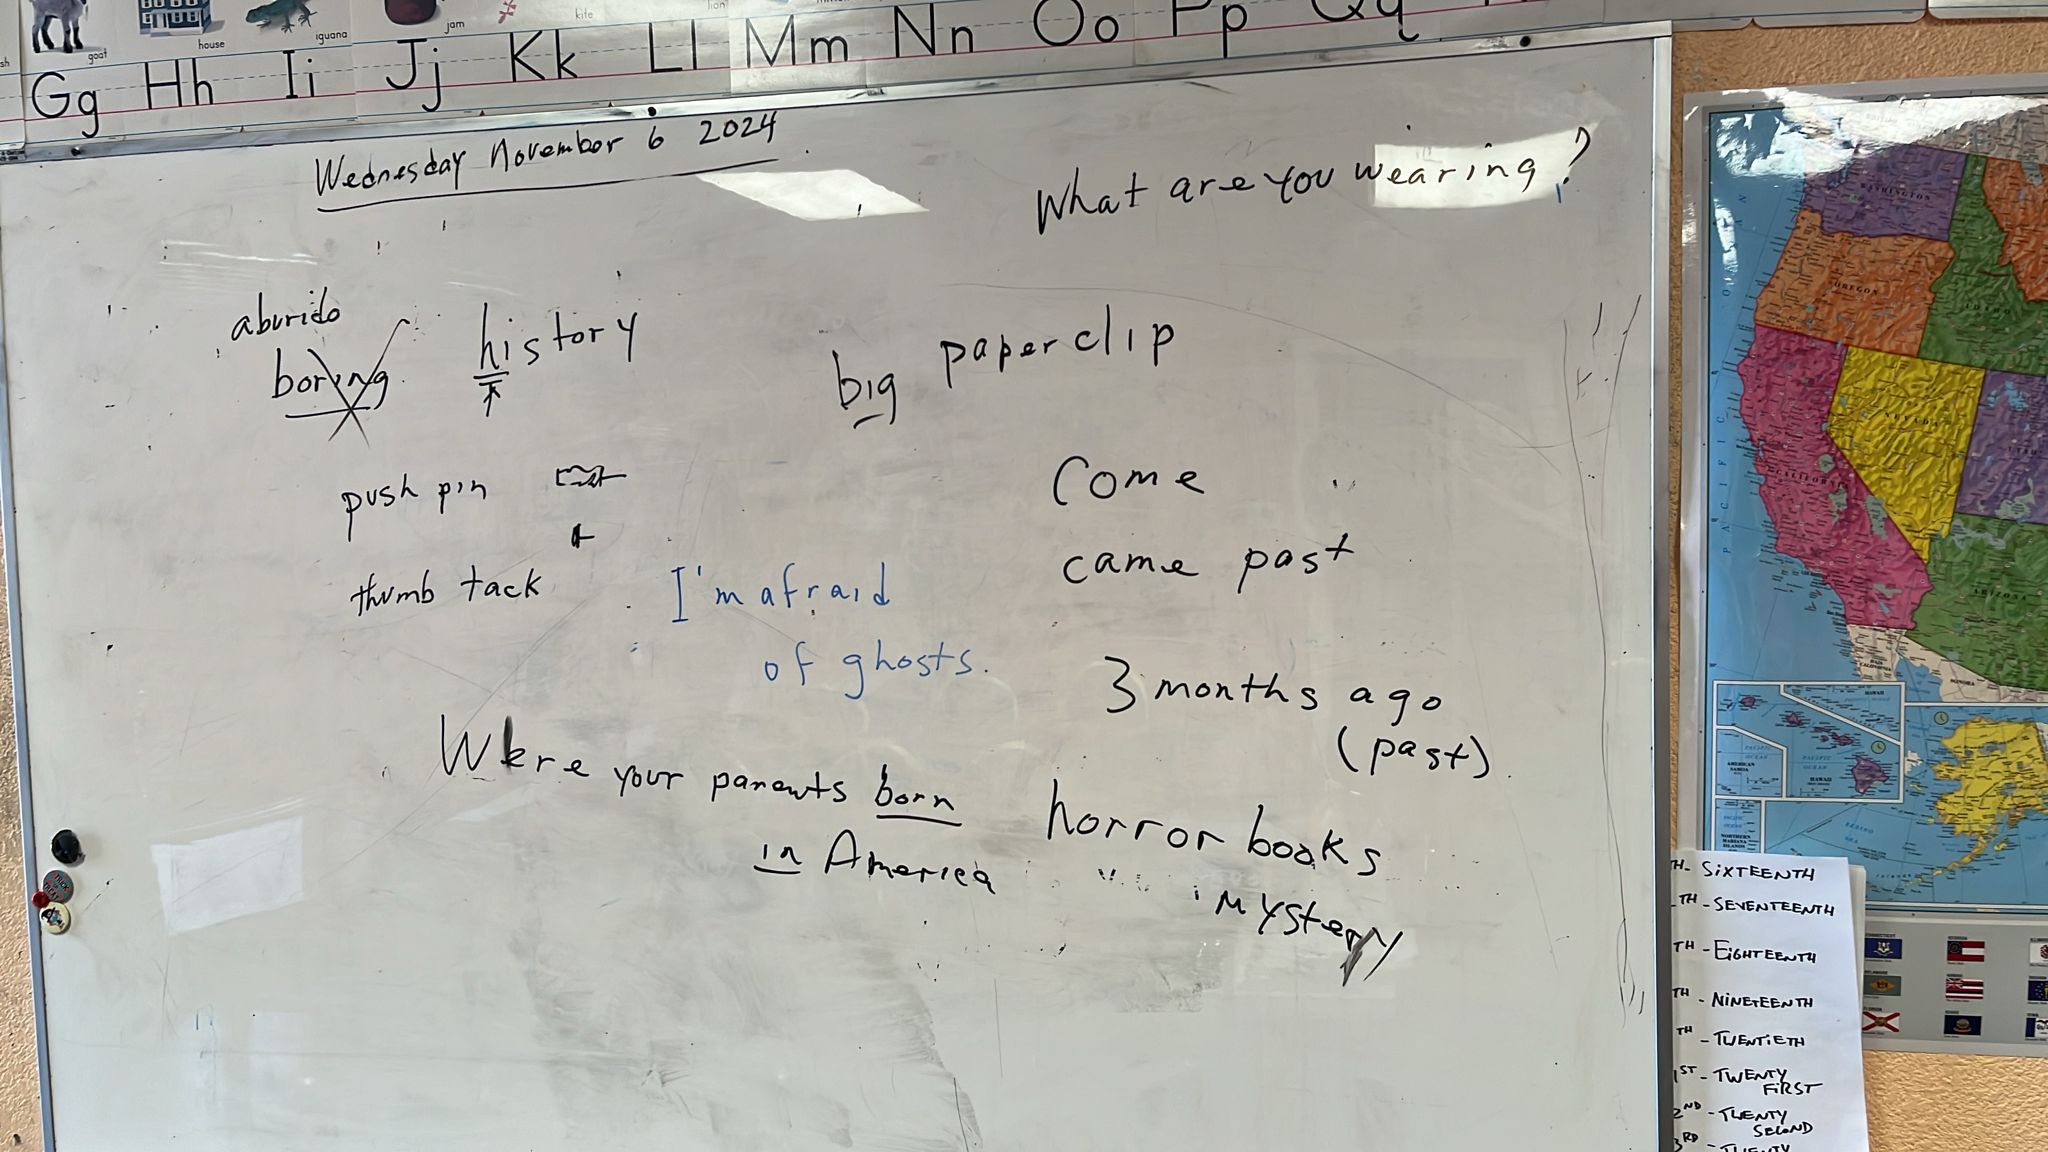 goat
house
iguana
jam
kite
lion
Gg Hh Ii Jj Kk Ll Mm Nn Oo Pp Qq
Wednesday November 6 2024
What are you wearing?
aburido
boring
history
big paper clip
push pin
thumb tack
Come
came past
I'm afraid
of ghosts.
3 months ago
(past)
Were your parents born
in America
horror books
mystery
WASHINGTON
OREGON
IDAHO
NEVADA
UTAH
CALIFORNIA
ARIZONA
PACIFIC
HAWAII
TH- SIXTEENTH
TH- SEVENTEENTH
TH- EIGHTEENTH
TH- NINETEENTH
TH- TWENTIETH
1ST- TWENTY
FIRST
2ND- TWENTY
SECOND
3RD- TWENTY